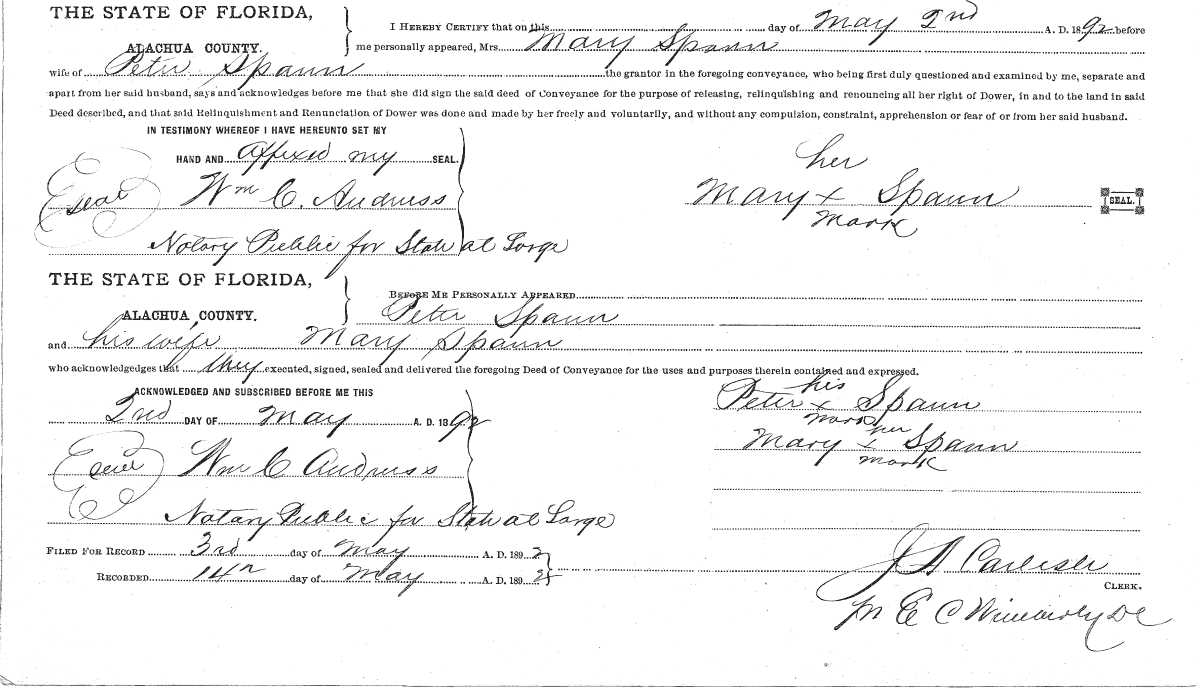 THE STATE OF FLORIDA,
ALACHUA COUNTY.
I HEREBY CERTIFY that on this day of May 2nd A. D. 1892 before
me personally appeared, Mrs. Mary Spann
wife of Peter Spann the grantor in the foregoing conveyance, who being first duly questioned and examined by me, separate and
apart from her said husband, says and acknowledges before me that she did sign the said deed of Conveyance for the purpose of releasing, relinquishing and renouncing all her right of Dower, in and to the land in said
Deed described, and that said Relinquishment and Renunciation of Dower was done and made by her freely and voluntarily, and without any compulsion, constraint, apprehension or fear of or from her said husband.
IN TESTIMONY WHEREOF I HAVE HEREUNTO SET MY
HAND AND affixed my SEAL.
seal Wm C. Andruss
Notary Public for State at Large
her
Mary x Spann SEAL.
mark
THE STATE OF FLORIDA,
ALACHUA COUNTY.
BEFORE ME PERSONALLY APPEARED
Peter Spann
and his wife Mary Spann
who acknowledgedges that they executed, signed, sealed and delivered the foregoing Deed of Conveyance for the uses and purposes therein contained and expressed.
ACKNOWLEDGED AND SUBSCRIBED BEFORE ME THIS
2nd DAY OF May A. D. 1892
seal Wm C Andruss
Notary Public for State at Large
his
Peter x Spann
mark
her
Mary x Spann
mark
FILED FOR RECORD 3rd day of May A. D. 1892
RECORDED 14th day of May A. D. 1892
J A Carlisle
CLERK.
pr E C Wimberly DC